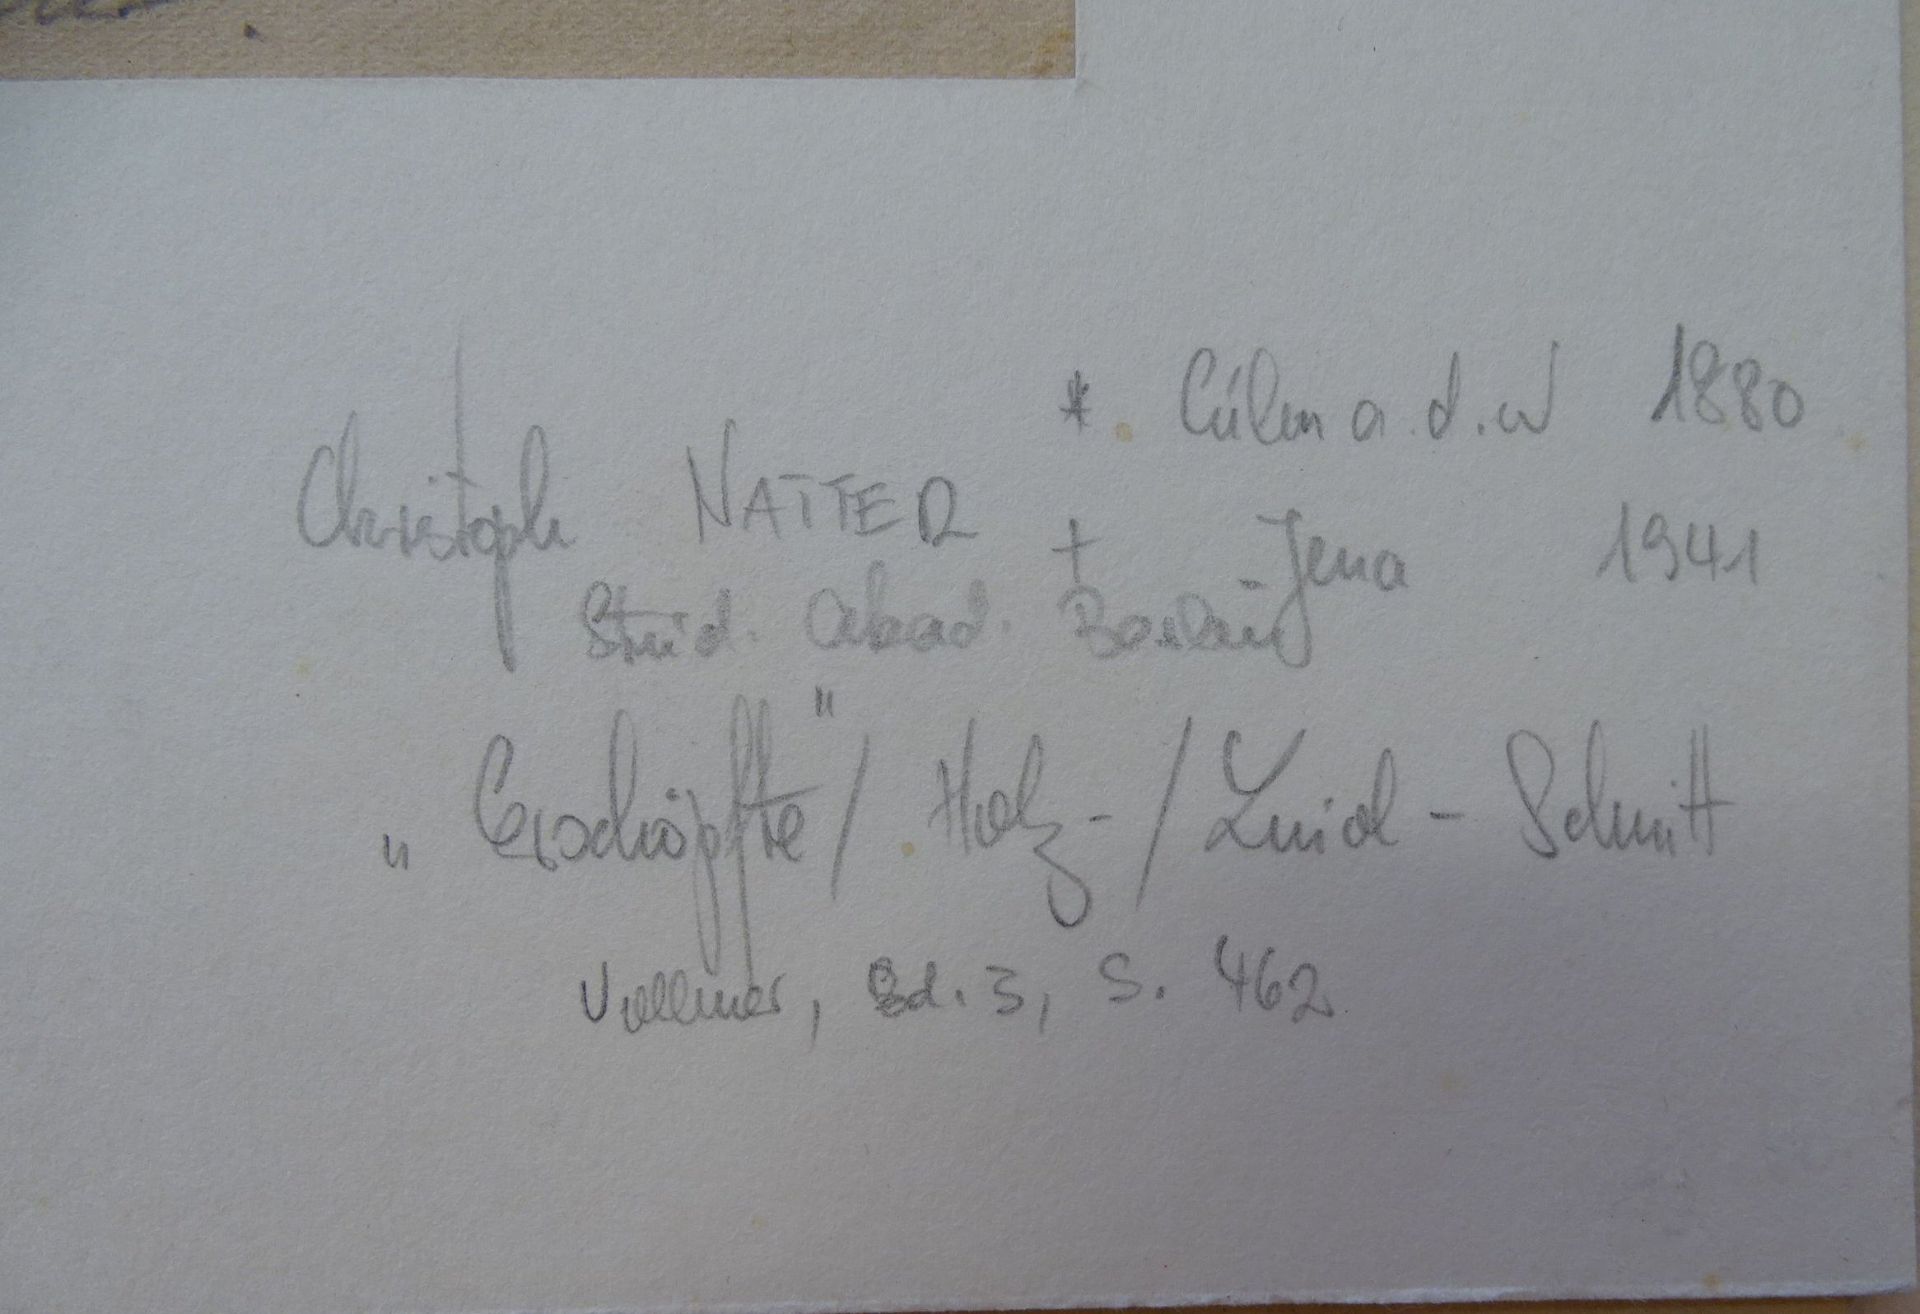 * Cúlm a. d. W 1880
Christoph NATTER
+ Jena 1941
Stud. Akad.
„Erschöpfte"/ Holz-/ Linol-Schnitt
Vollmer, Bd. 3, S. 462